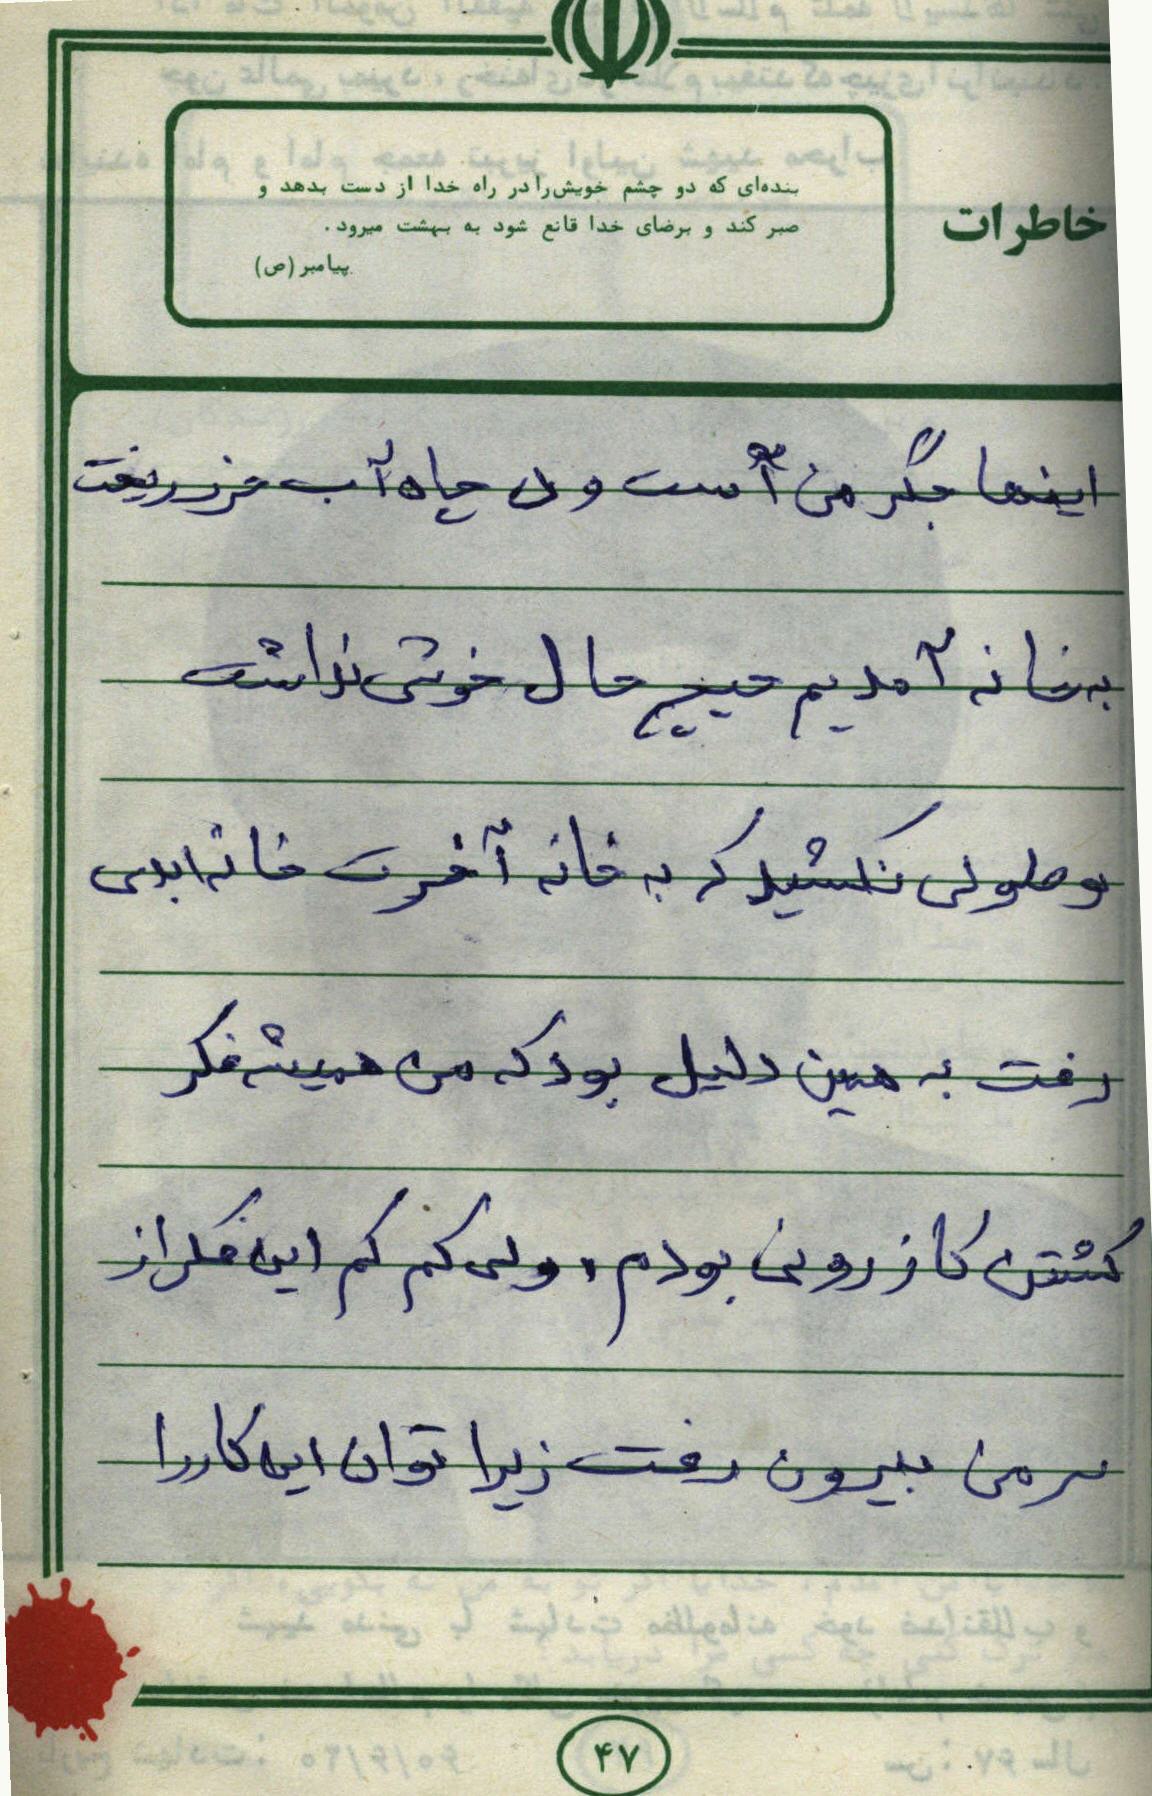 خاطرات
بنده‌ای که دو چشم خویش را در راه خدا از دست بدهد و
صبر کند و برضای خدا قانع شود به بهشت میرود.
پیامبر (ص)
اینها جگر من است ولی چاه آب فرو ریخت
به خانه آمدیم هیچ حال خوشی نداشت
و طولی نکشید که به خانه آخرت خانه ابدی
رفت به همین دلیل بود که من همیشه فکر
کشتن کازرونی بودم، ولی کم کم این فکر از
سر من بیرون رفت زیرا توان این کار را
۴۷